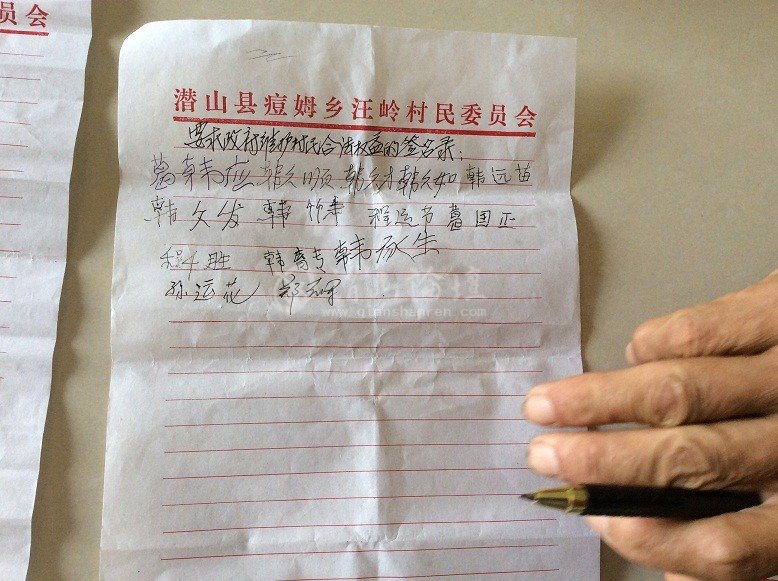 员会
潜山县痘姆乡汪岭村民委员会
要求政府维护村民合法权益的签名录:
葛韩应 韩久顺 韩久如 韩远苗
韩久发 韩竹青 程运节 葛国正
程胜 韩育专 韩承生
孙运花 郑
www.qianshanren.com